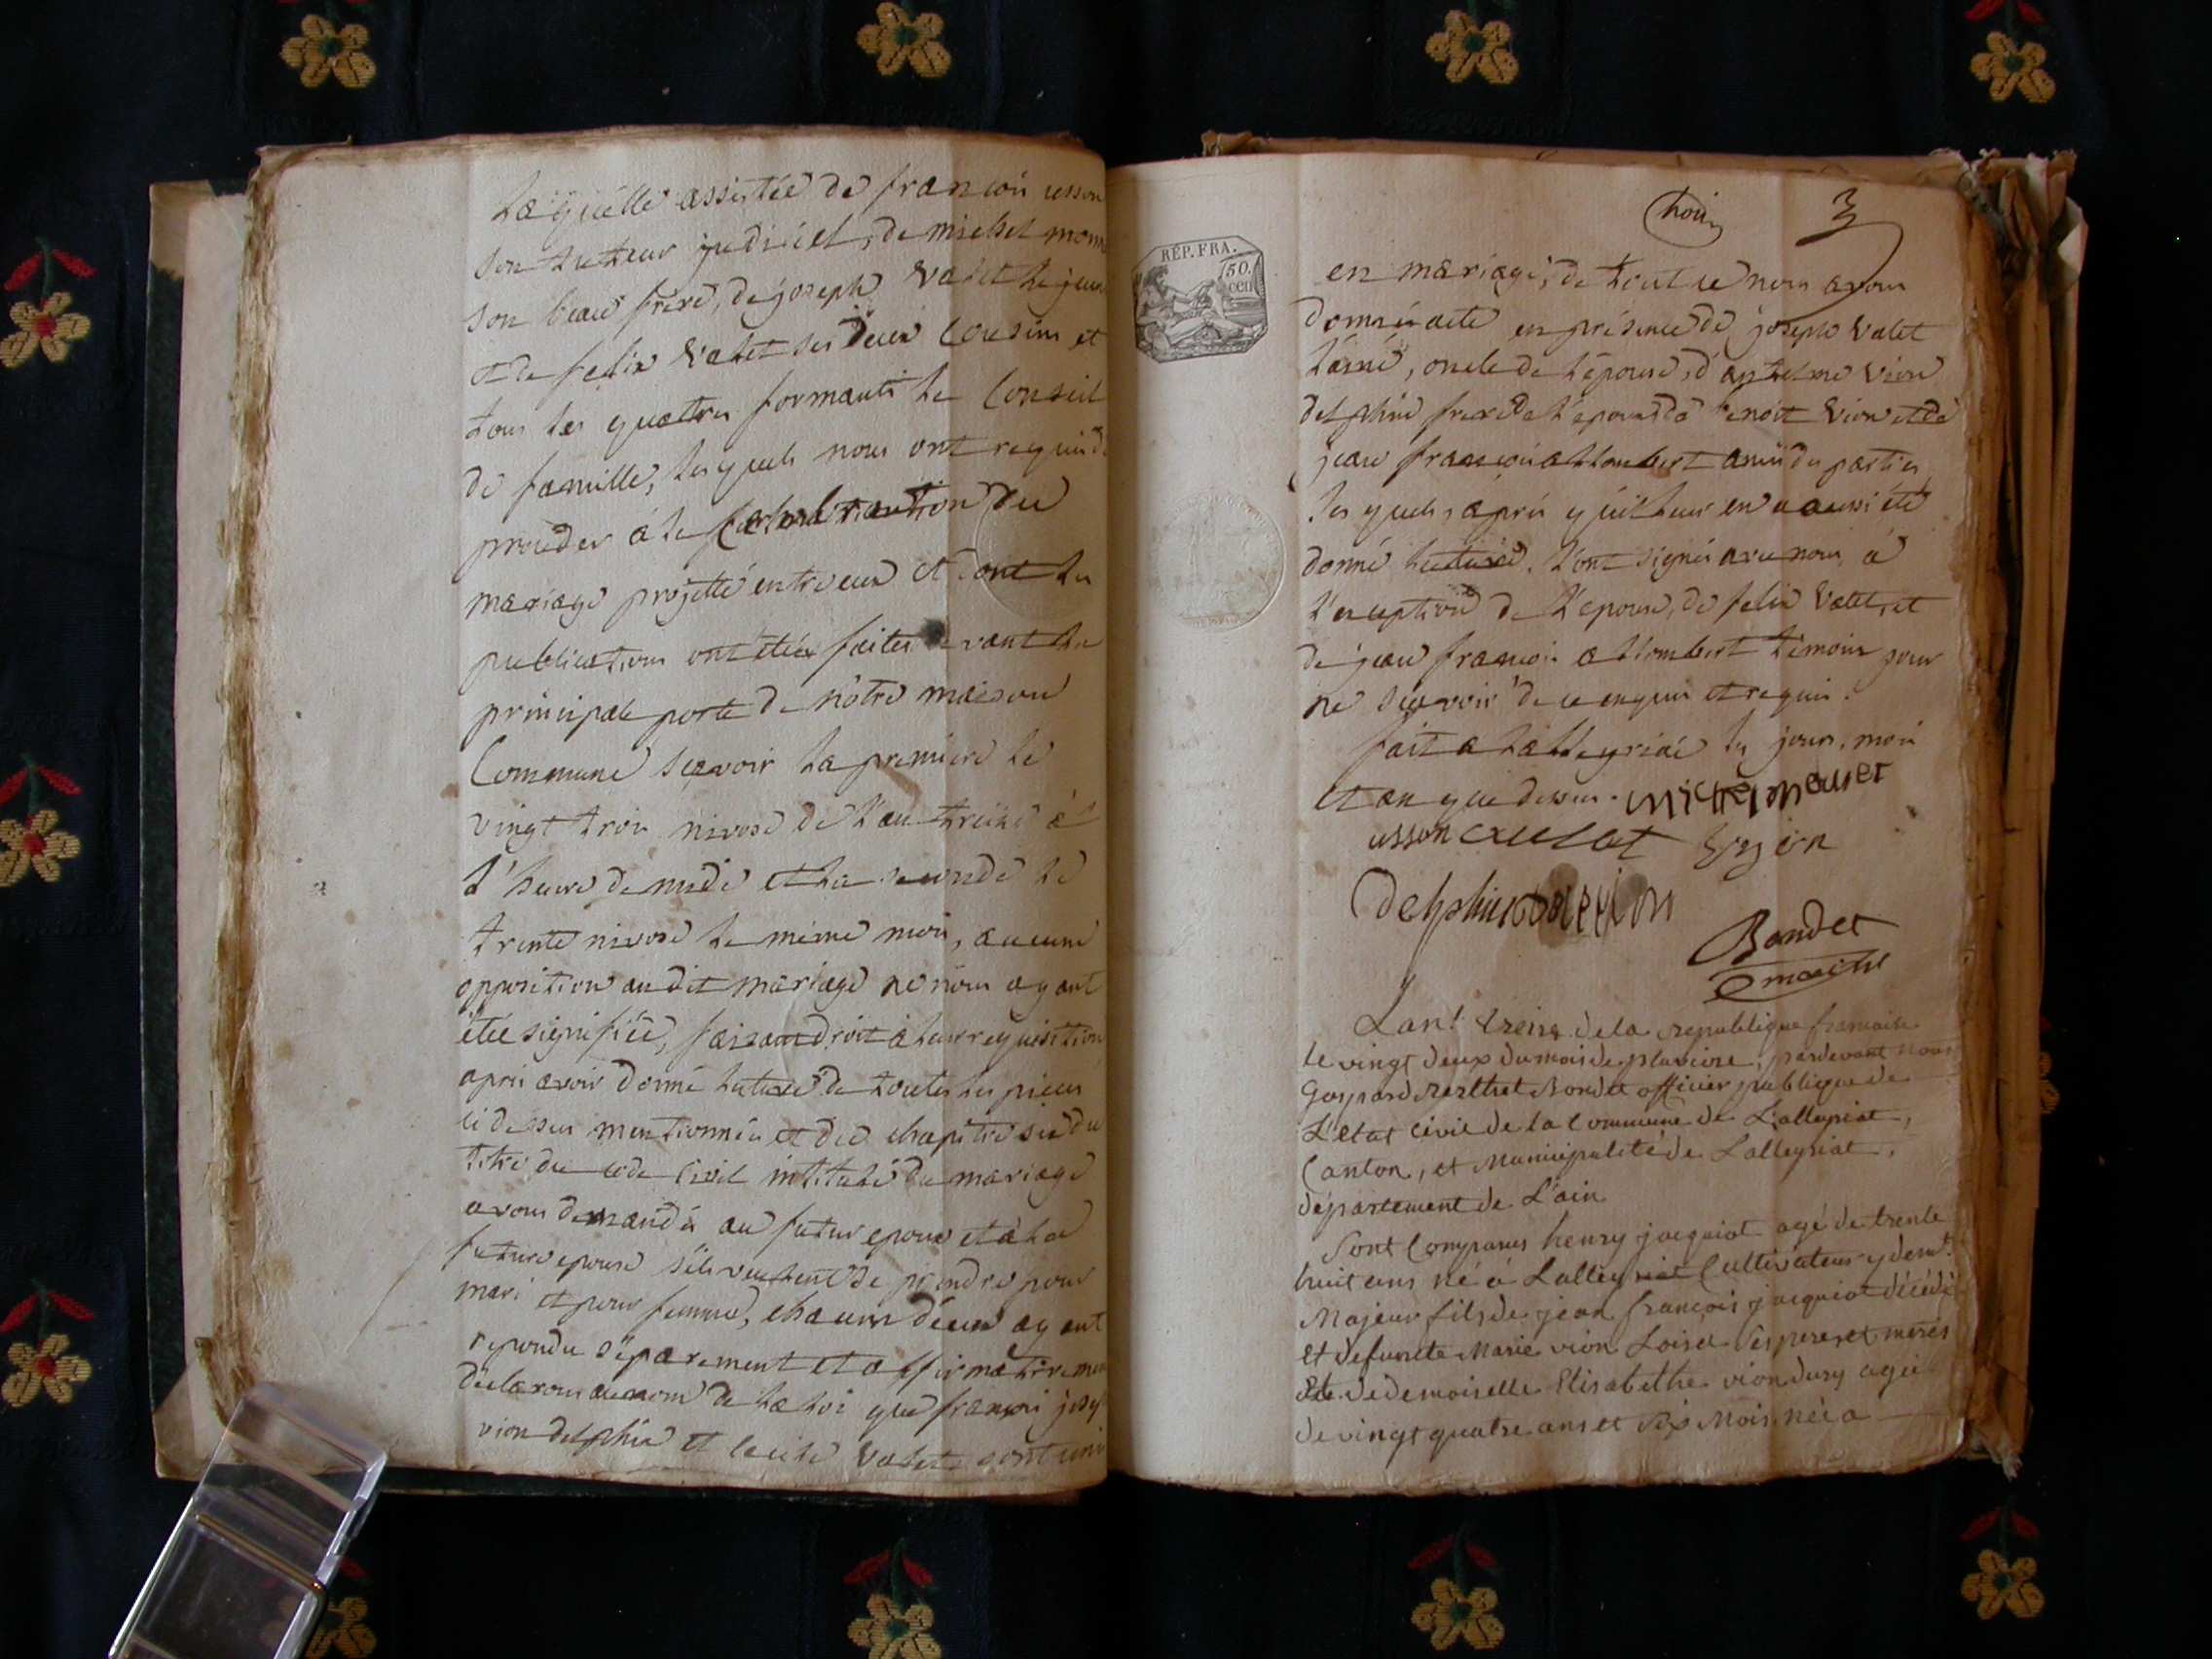 laquélle assistée de francois usson
son tuteur judiciel, de michel
son beau frere, de joseph Valet le jeune
et de felix Valet ses deux Cousins et
tous les quatres formants le Conseil
de famille, les quels nous ont requis de
procéder à la Celebration du
mariage projetté entre eux et dont les
publications ont étées faites devant la
principale porte de nôtre maison
Commune sçavoir la premiere le
vingt trois nivose de l'an treize à
l'heure de midi et la seconde le
trente nivose le même mois, aucune
opposition audit mariage ne nous ayant
étée signifiée, faisant droit à leur requisition
après avoir donné lecture de toutes les pieces
ci dessus mentionnées et du chapitre six du
titre du code Civil intitulé du mariage
avons demandés au futur epoux et à la
future epouse s'ils veulent se prendre pour
mari et pour femme, chacun d'eux ayant
repondu séparement et affirmativement
déclarons au nom de la loi que francois joseph
vion delphin et Valet sont unis
trois 3
RÉP. FRA.
50.
cen
en mariage, de tout ce nous avons
donnés acte en présence de joseph Valet
l'ainé, oncle de l'épouse, d'anthelme Vion
delphin frere de l'epoux de benoit Vion et de
jean francois allombert amis des parties,
les quels, après qu'il leur en a aussi été
donné lecture. l'ont signés avec nous, à
l'exception de l'epouse, de felix Valet, et
de jean francois allombert témoins pour
ne sçavoir de ce enquis et requis.
fait a lalleyriat les jours, mois
et an que dessus. michel
usson Vion
delphin
Bondet
maire
L'an treize de la republique francaise
le vingt deux du mois de pluviose, pardevant nous
Gaspard Bondet officier publique de
L'etat civil de la Commune de Lalleyriat,
Canton, et Municipalité de Lalleyriat,
département de L'ain
Sont Comparus henry jacquiot agé de trente
huit ans né à Lalleyriat Cultivateur y demt.
Majeur fils de jean françois jacquiot décédé
et defunte Marie vion Loisel ses peres et meres
Et de demoiselle Elisabethe vion dury agée
de vingt quatre ans et six Mois née a